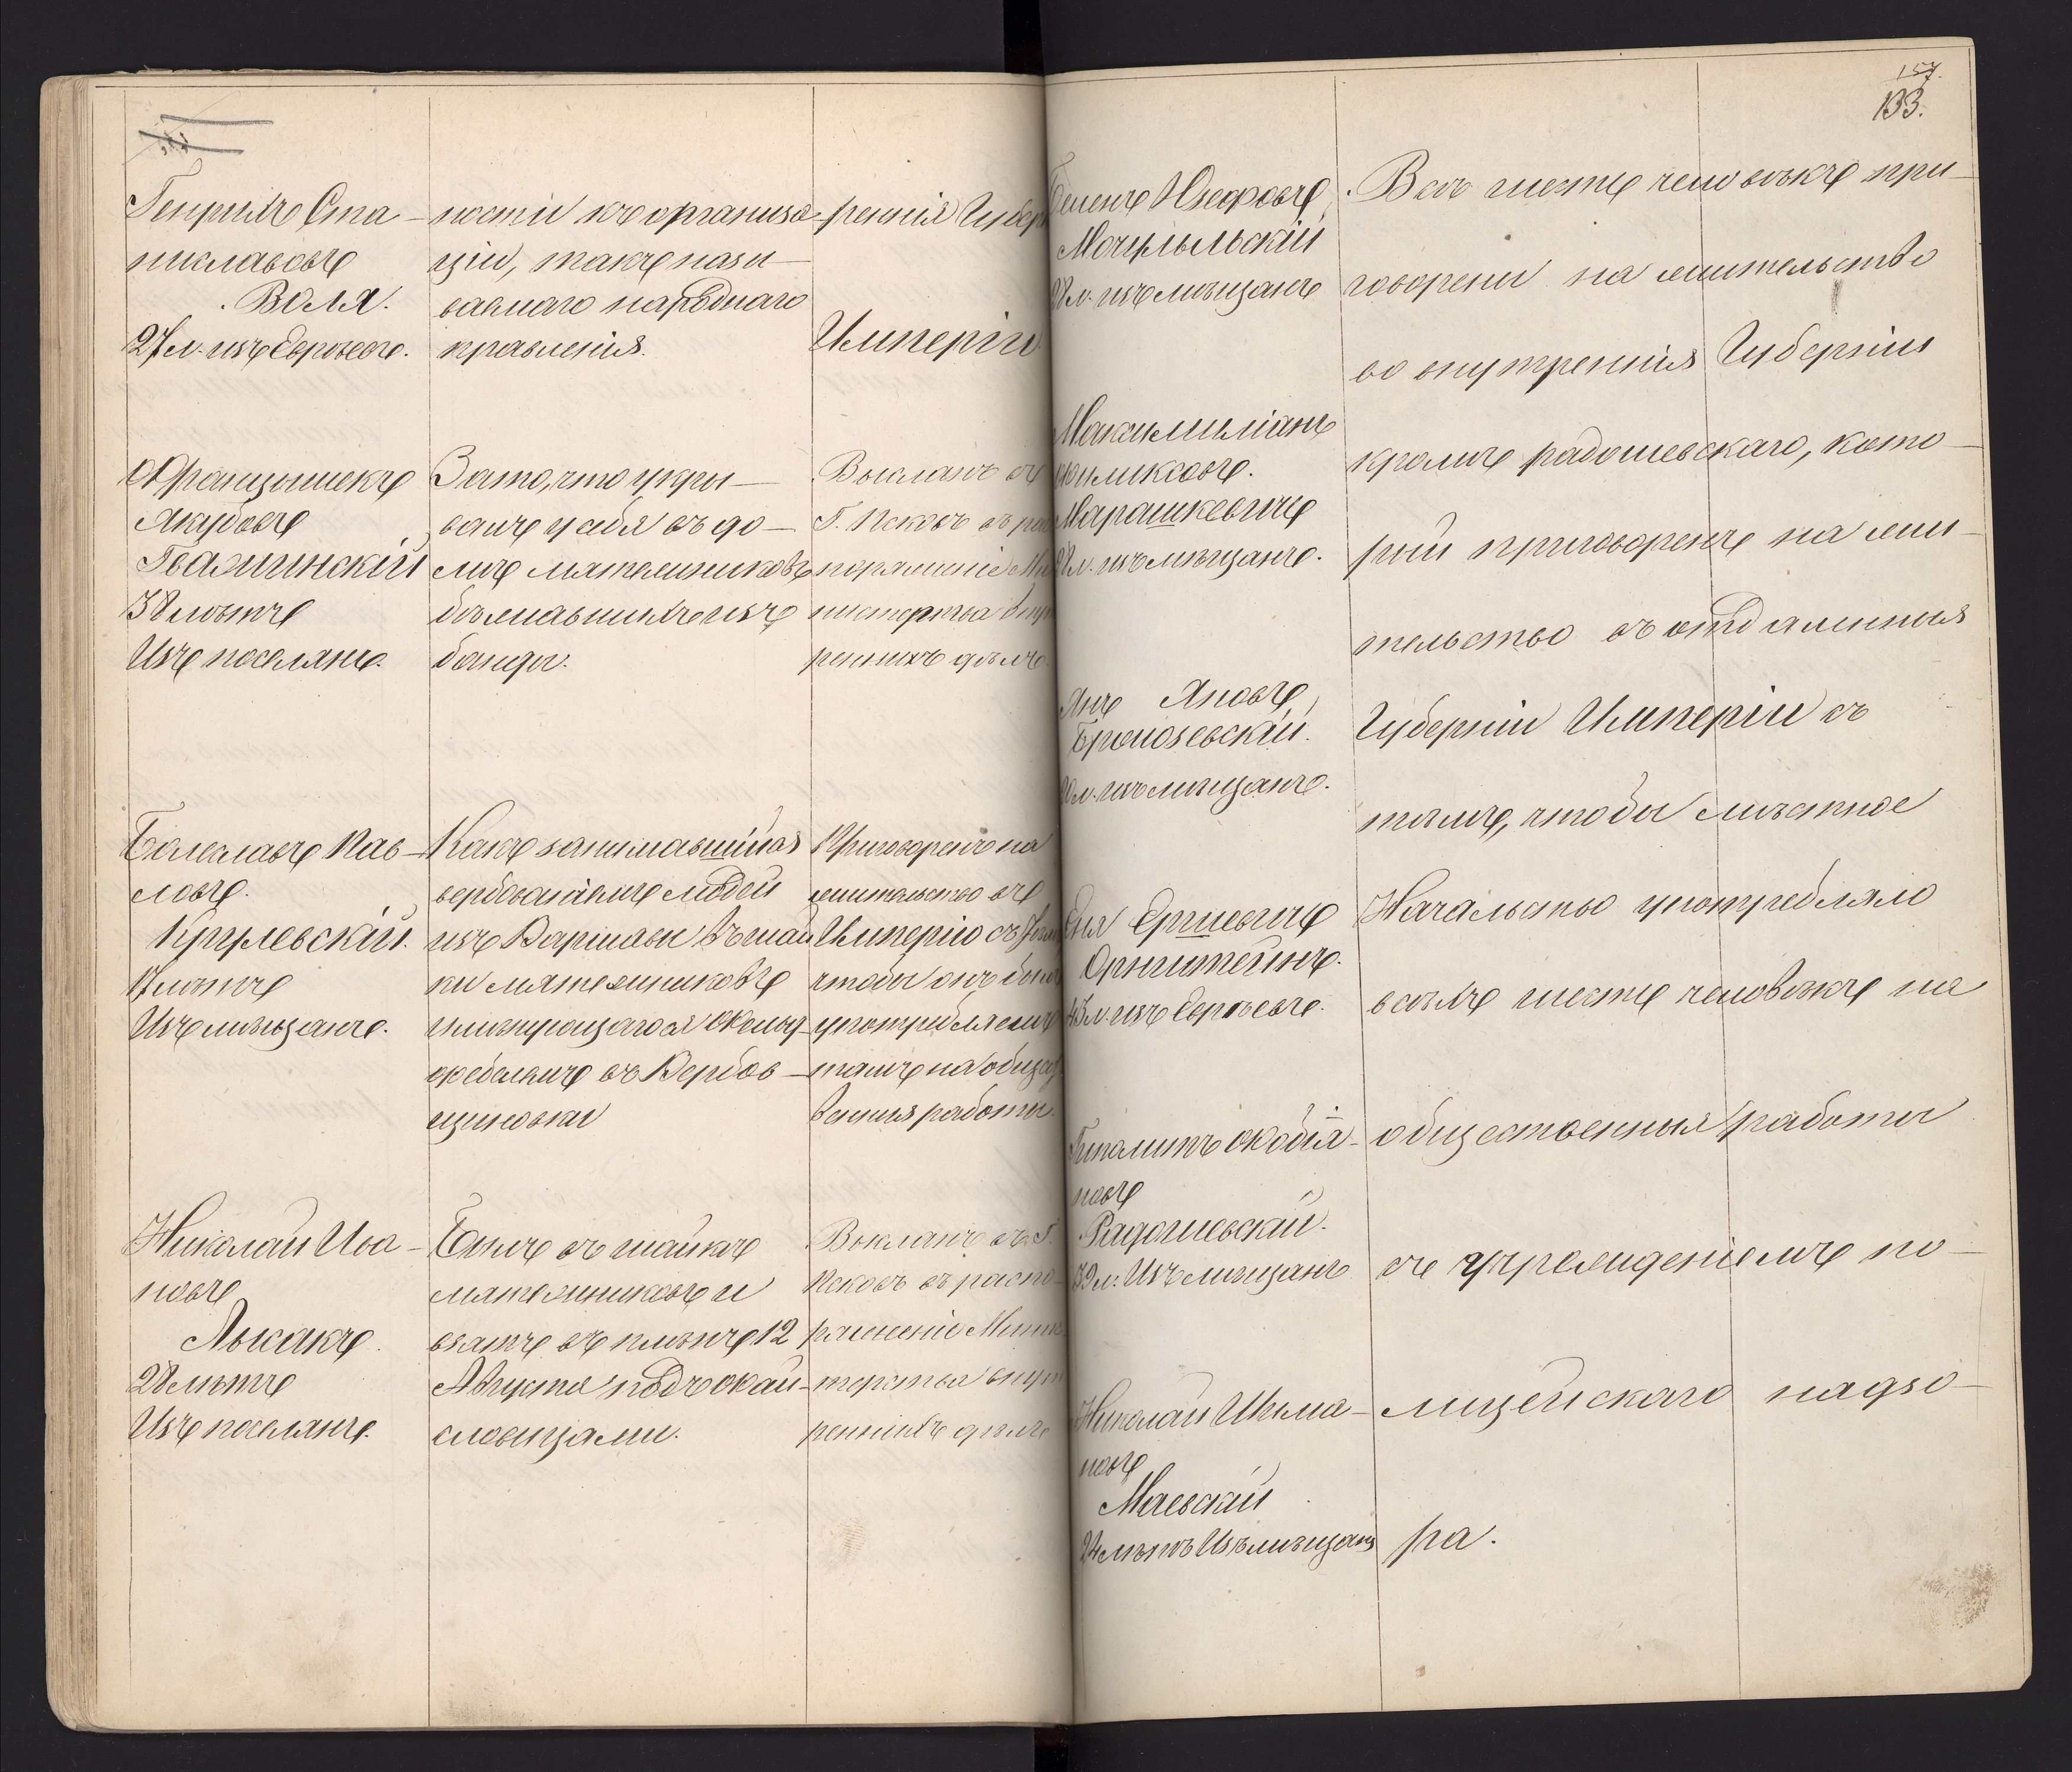 Генрихъ Ста-
ниславовъ
Воля.
27 л. изъ Евреевъ.
ности къ организа-
ціи, такъ назы-
ваемаго народнаго
правленія.
реннія Губер
Имперіи
Францышекъ
Якубовъ
38 лѣтъ
Изъ поселянъ.
За то, что укры-
валъ у себя въ до-
мѣ мятежниковъ
бѣжавшихъ изъ
банды.
Высланъ въ
Г. Псковъ въ рас
поряженіе Ми
нистерства Внут
реннихъ дѣлъ.
Болеславъ Пав-
ловъ.
Круглевскій.
17 лѣтъ
Изъ мѣщанъ.
Какъ занимавшійся
вербованіемъ людей
изъ Варшавы въ шай
ки мятежниковъ
и
въ Вербов-
щиковки
Приговоренъ на
жительство въ
Имперію съ
чтобы онъ былъ
употребляемъ
тамъ на общес
венныя работы.
Николай Ива-
новъ
Лысакъ.
28 лѣтъ
Изъ поселянъ.
Былъ въ шайкѣ
мятежниковъ и
взятъ въ плѣнъ 12
Августа подъ Жай-
словицами.
Высланъ въ Г.
Псковъ въ распо-
ряженіе Мини
терства внут
реннихъ дѣлъ
157.
133.
Юзефовъ
л. изъ мѣщанъ
Максимиліанъ
Феликсовъ.
Марашкевичъ
л. изъ мѣщанъ.
Янъ Яновъ,
л. изъ мѣщанъ.
Ершевичъ
Орнштейнъ.
43 л. изъ Евреевъ.
новъ
Радошевскій.
39 л. Изъ мѣщанъ
Николай Шыма-
новъ
Маевскій
24 лѣтъ Изъ мѣщанъ
Всѣ шесть человѣкъ при-
говорены на жительство
во внутреннія Губерніи
кромѣ Радошевскаго, кото-
рый приговоренъ на жи-
тельство въ отдаленныя
Губерніи Имперіи съ
тѣмъ, чтобы мѣстное
Начальство употребляло
всѣхъ шесть человѣкъ на
общественныя работы
съ учрежденіемъ по-
лицейскаго надзо-
ра.